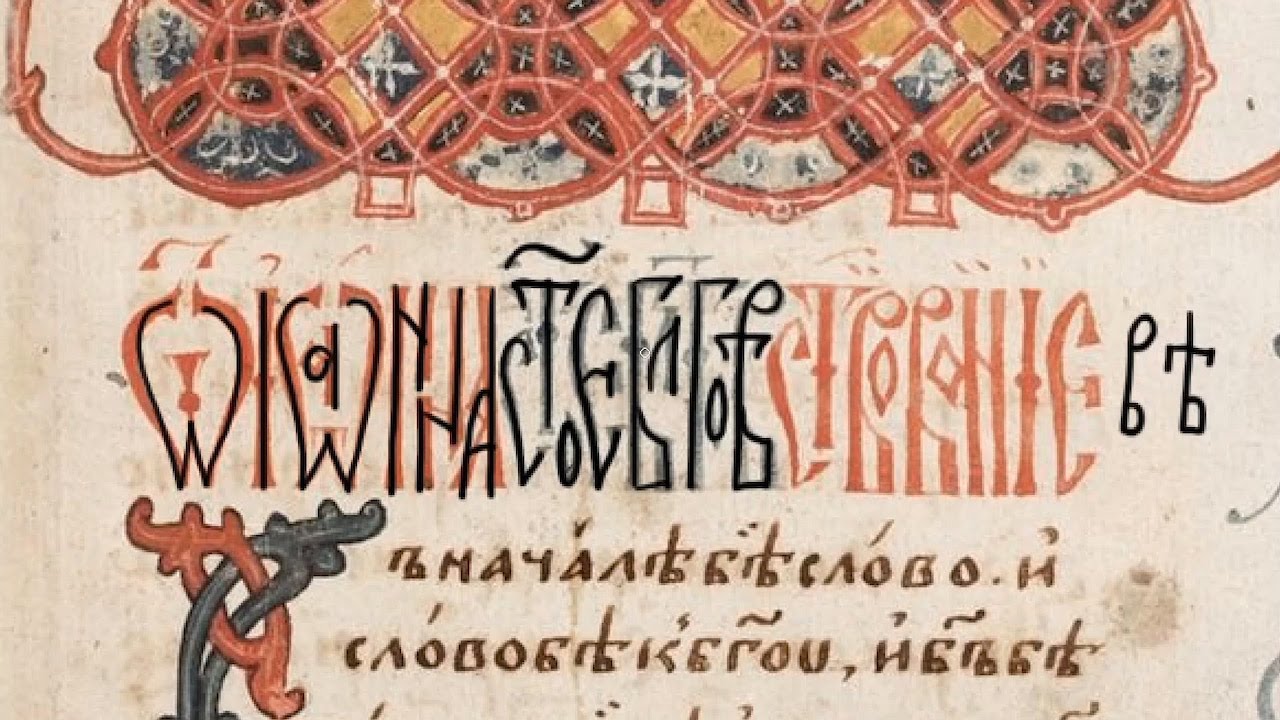 ѿ іѡанна ст҃ое бл҃говѣствованіе вѣ
Въ нача́лѣ бѣ сло́во. и҆
сло́во бѣ к бг҃ѹ, и҆ б҃ъ бѣ